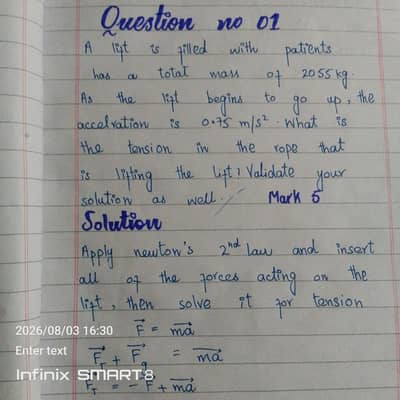 Question no 01
A lift is filled with patients
has a total mass of 2055 kg.
As the lift begins to go up, the
accelration is 0.75 m/s². What is
the tension in the rope that
is lifting the lift? Validate your
solution as well. Mark 5
Solution
Apply newton's 2nd law and insert
all of the forces acting on the
lift, then solve it for tension
2026/08/03 16:30
F⃗ = ma⃗
Enter text
F⃗_T + F⃗_g = ma⃗
Infinix SMART 8
F⃗_T = - F⃗ + ma⃗